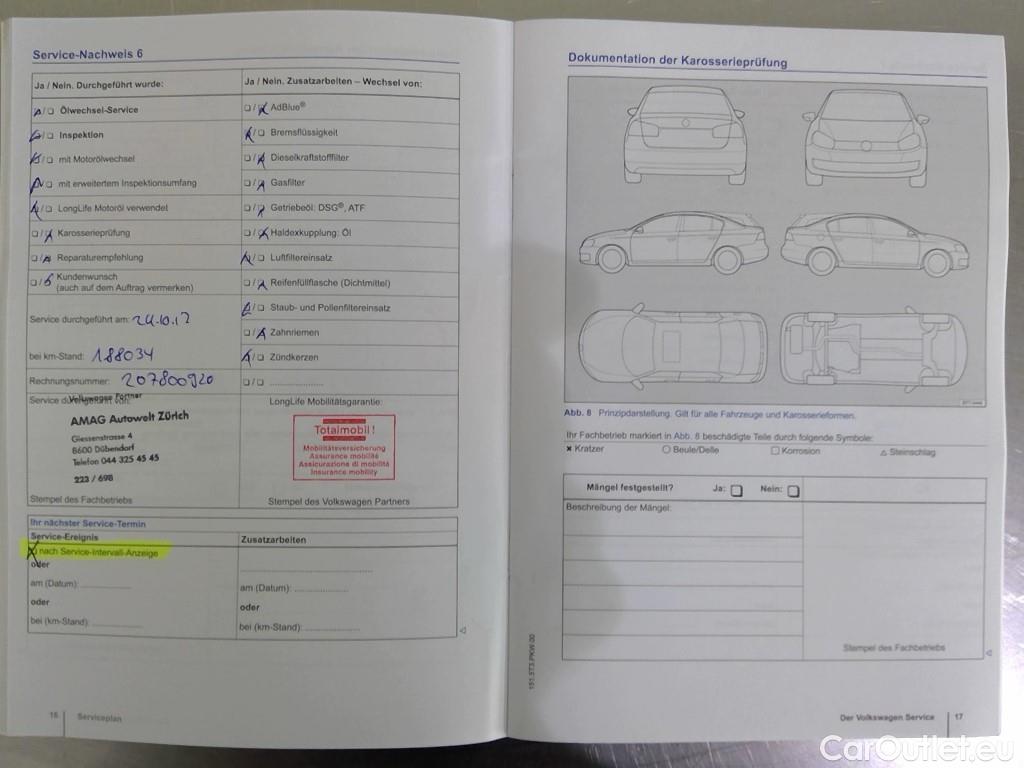 Service-Nachweis 6
Ja / Nein. Durchgeführt wurde:
☐ / ☐ Ölwechsel-Service
☐ / ☐ Inspektion
☐ / ☐ mit Motorölwechsel
☐ / ☐ mit erweitertem Inspektionsumfang
☐ / ☐ LongLife Motoröl verwendet
☐ / ☐ Karosserieprüfung
☐ / ☐ Reparaturempfehlung
☐ / ☐ Kundenwunsch
(auch auf dem Auftrag vermerken)
Service durchgeführt am: 24.10.17
bei km-Stand: 188034
Rechnungsnummer: 207800920
Service durchgeführt von:
Volkswagen Partner
AMAG Autowelt Zürich
Giessenstrasse 4
8600 Dübendorf
Telefon 044 325 45 45
223 / 698
Stempel des Fachbetriebs
Ja / Nein. Zusatzarbeiten – Wechsel von:
☐ / ☐ AdBlue®
☐ / ☐ Bremsflüssigkeit
☐ / ☐ Dieselkraftstofffilter
☐ / ☐ Gasfilter
☐ / ☐ Getriebeöl: DSG®, ATF
☐ / ☐ Haldexkupplung: Öl
☐ / ☐ Luftfiltereinsatz
☐ / ☐ Reifenfüllflasche (Dichtmittel)
☐ / ☐ Staub- und Pollenfiltereinsatz
☐ / ☐ Zahnriemen
☐ / ☐ Zündkerzen
☐ / ☐ ....................
LongLife Mobilitätsgarantie:
Totalmobil!
Mobilitätsversicherung
Assurance mobilité
Assicurazione di mobilità
Insurance mobility
Stempel des Volkswagen Partners
Ihr nächster Service-Termin
Service-Ereignis
☐ nach Service-Intervall-Anzeige
oder
am (Datum): ....................
oder
bei (km-Stand): ....................
Zusatzarbeiten
....................
am (Datum): ....................
oder
bei (km-Stand): ....................
16 Serviceplan
Dokumentation der Karosserieprüfung
Abb. 8 Prinzipdarstellung. Gilt für alle Fahrzeuge und Karosserieformen.
Ihr Fachbetrieb markiert in Abb. 8 beschädigte Teile durch folgende Symbole:
✖ Kratzer ○ Beule/Delle ☐ Korrosion △ Steinschlag
Mängel festgestellt? Ja: ☐ Nein: ☐
Beschreibung der Mängel:
Stempel des Fachbetriebs
151.5T3.PKW.00
Der Volkswagen Service 17
CarOutlet.eu